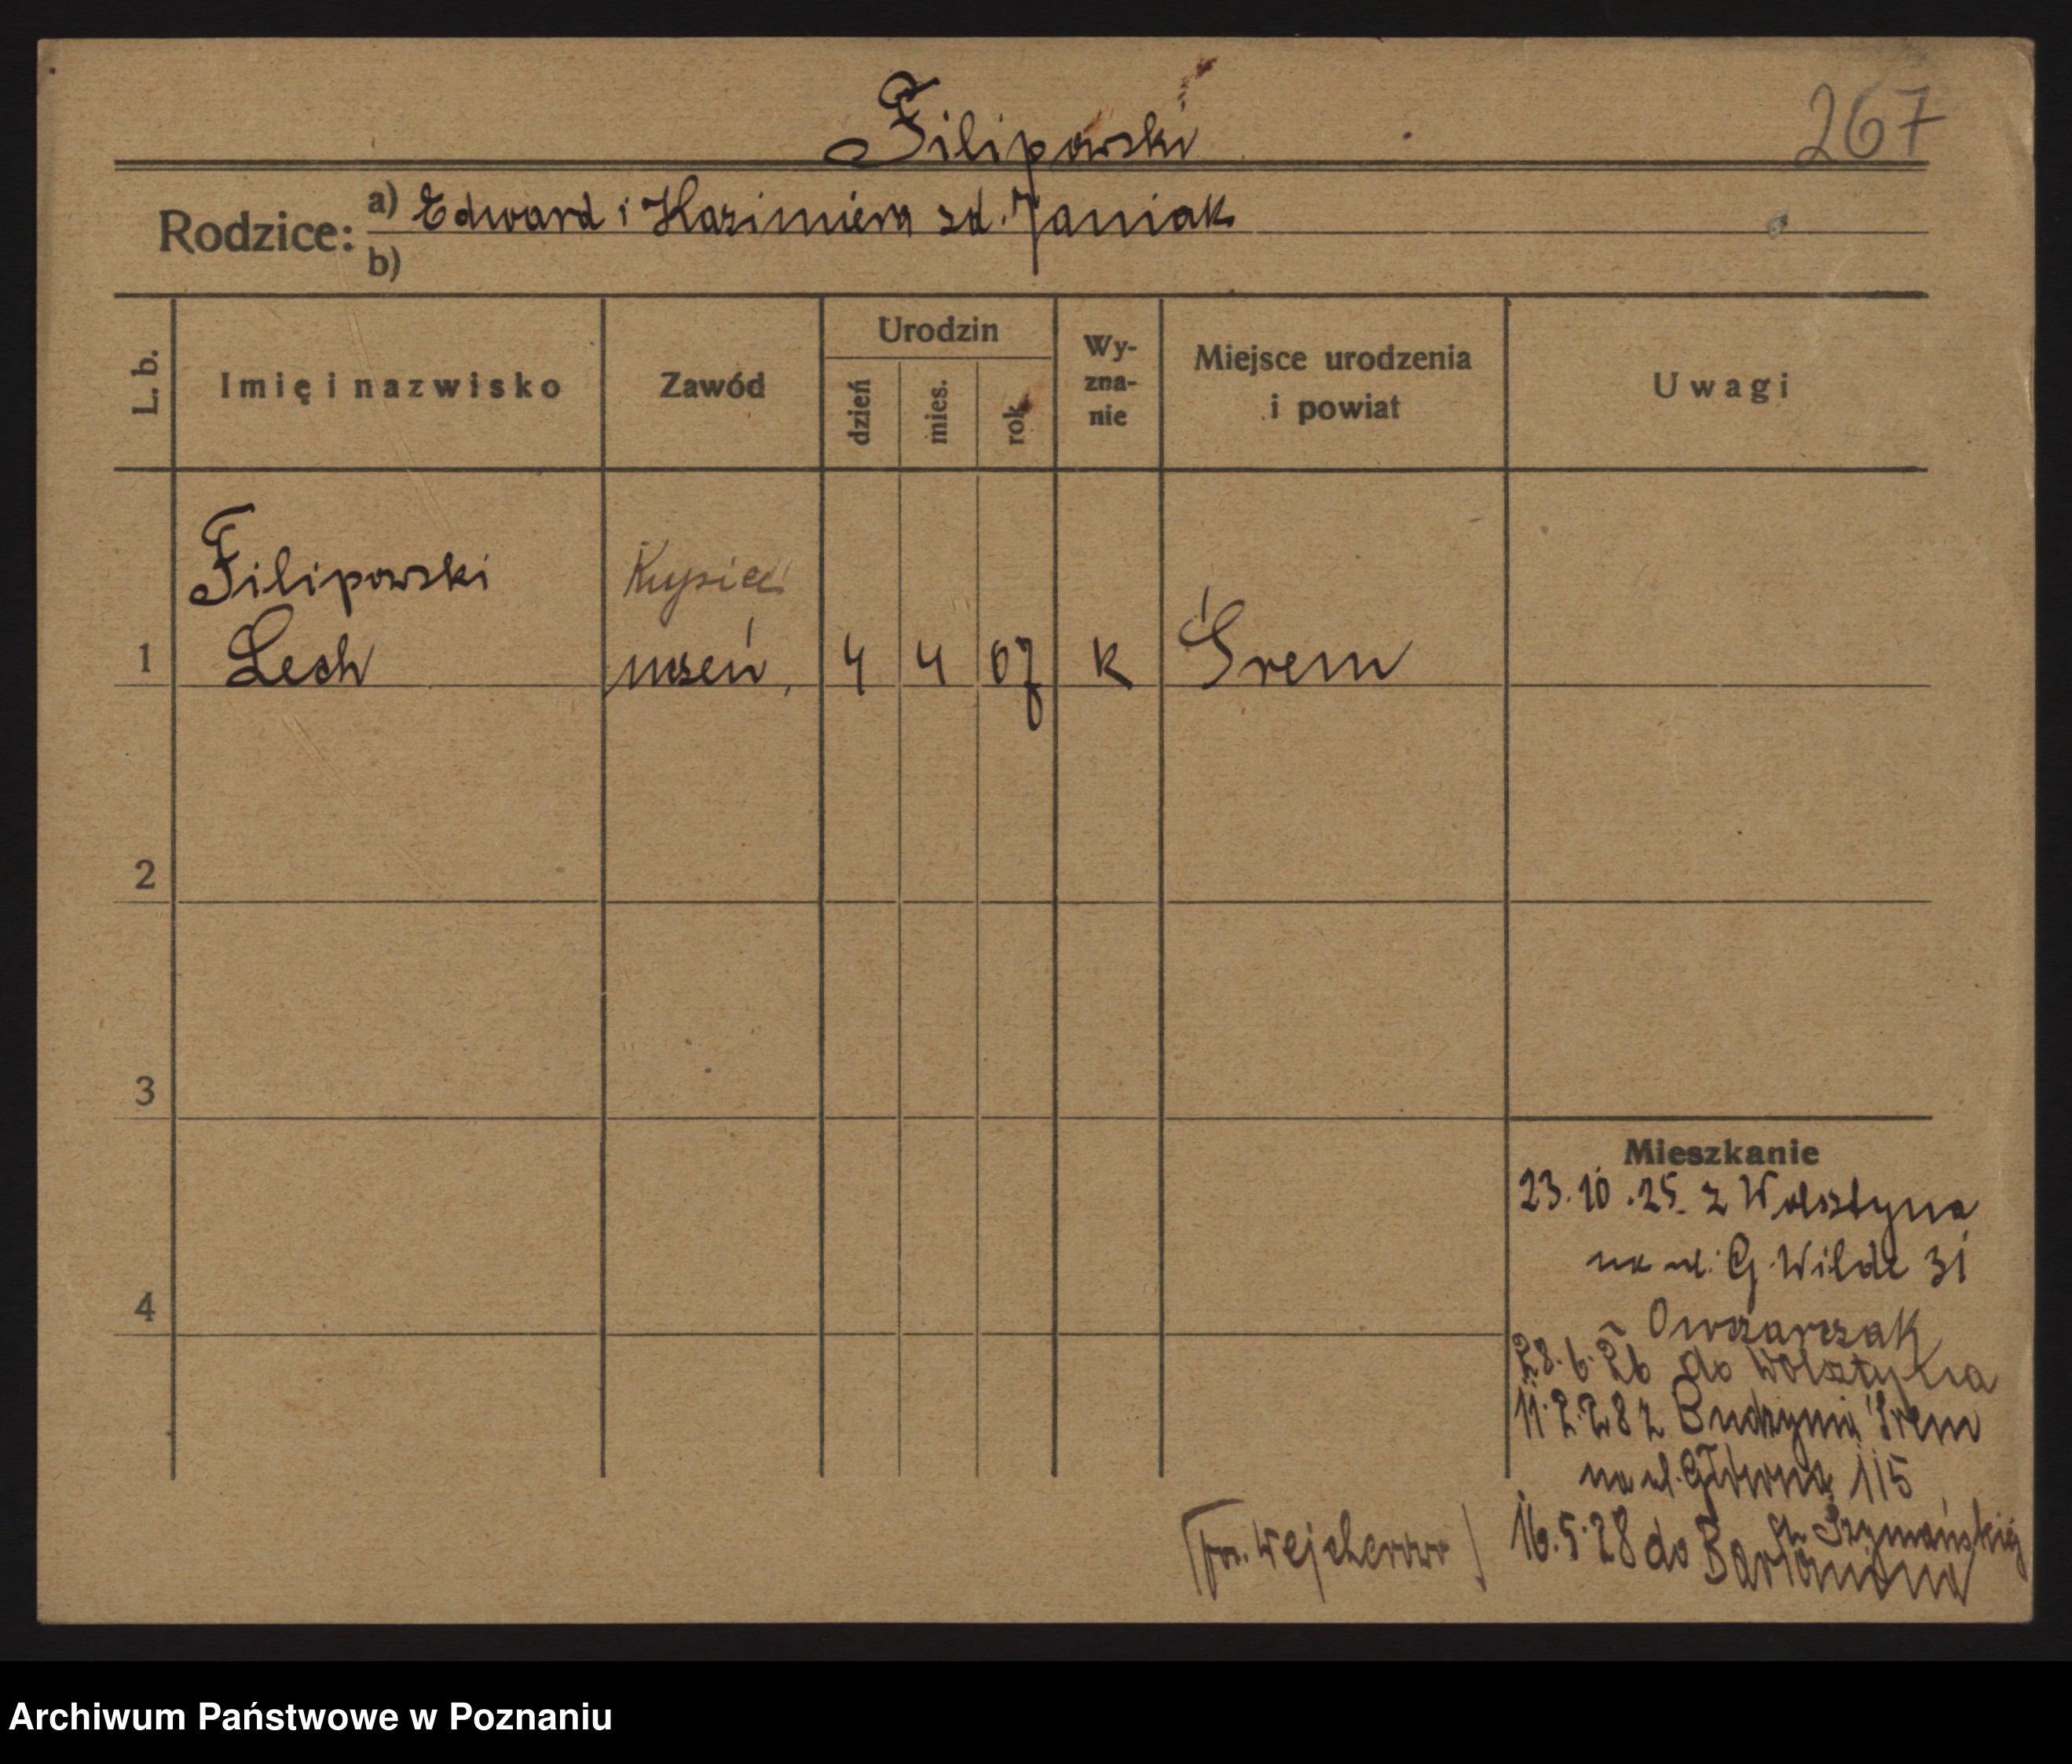 Filipowski
267
Rodzice:
a) Edward i Kazimiera zd. Janiak
b)
L. b.
Imię i nazwisko
Zawód
Urodzin
dzień
mies.
rok
Wy-
zna-
nie
Miejsce urodzenia
i powiat
Uwagi
Filipowski
Kupiec
1
Lech
uczeń,
4
4
07
K
Śrem
2
3
4
Mieszkanie
23.10.25. z Wolsztyna
na ul. G. Wilda 31
Owczarczak
28.6.26 do Wolsztyna
11.2.28 z Śrem
na ul. Główną 115
Szymańskiej
16.5.28 do
Wejcherowo
Archiwum Państwowe w Poznaniu